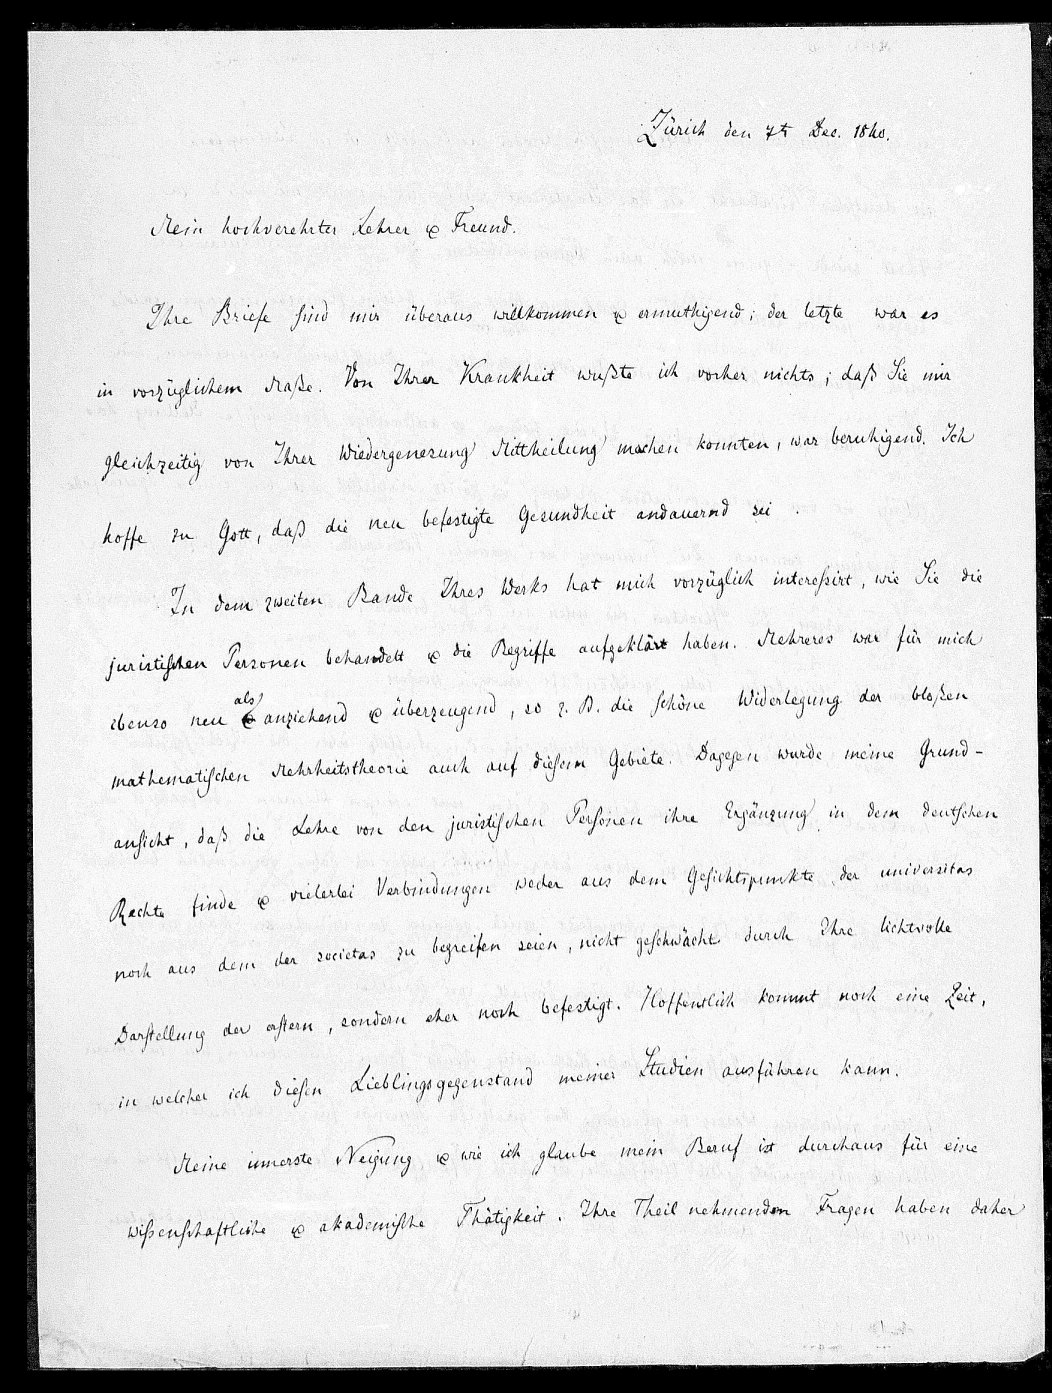 Zürich den 7t Dec. 1840.
Mein hochverehrter Lehrer & Freund.
Ihre Briefe sind mir überaus willkommen & ermuthigend; der letzte war es
in vorzüglichem Maße. Von Ihrer Krankheit wußte ich vorher nichts; daß Sie mir
gleichzeitig von Ihrer Wiedergenesung Mittheilung machen konnten, war beruhigend. Ich
hoffe zu Gott, daß die neu befestigte Gesundheit andauernd sei.
In dem zweiten Bande Ihres Werks hat mich vorzüglich interessirt, wie Sie die
juristischen Personen behandelt & die Begriffe aufgeklärt haben. Mehreres war für mich
ebenso neu als anziehend & überzeugend, so z. B. die schöne Widerlegung der bloßen
mathematischen Mehrheitstheorie auch auf diesem Gebiete. Dagegen wurde meine Grund-
ansicht, daß die Lehre von den juristischen Personen ihre Ergänzung in dem deutschen
Rechte finde & vielerlei Verbindungen weder aus dem Gesichtspunkte der universitas
noch aus dem der societas zu begreifen seien, nicht geschwächt durch Ihre lichtvolle
Darstellung der erstern, sondern eher noch befestigt. Hoffentlich kommt noch eine Zeit,
in welcher ich diesen Lieblingsgegenstand meiner Studien ausführen kann.
Meine innerste Neigung & wie ich glaube mein Beruf ist durchaus für eine
wißenschaftliche & akademische Thätigkeit. Ihre Theil nehmenden Fragen haben daher